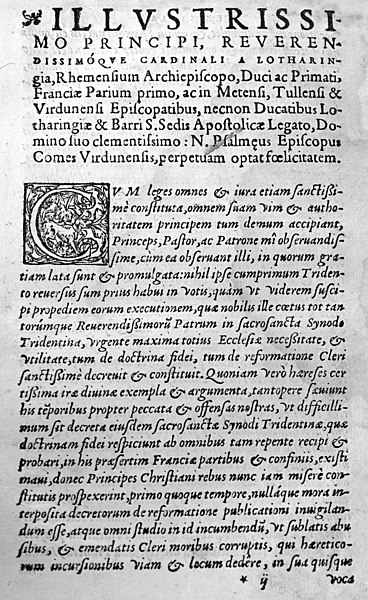 ILLVSTRISSI
MO PRINCIPI, REVEREN-
DISSIMÓQVE CARDINALI A LOTHARIN-
gia, Rhemensium Archiepiscopo, Duci ac Primati,
Franciæ Parium primo, ac in Metensi, Tullensi &
Virdunensi Episcopatibus, necnon Ducatibus Lo-
tharingiæ & Barri S. Sedis Apostolicæ Legato, Do-
mino suo clementissimo: N. Psalmęus Episcopus
Comes Virdunensis, perpetuam optat fœlicitatem.
CVM leges omnes & iura etiam sanctißi-
mè constituta, omnem suam vim & autho-
ritatem principem tum demum accipiant,
Princeps, Pastor, ac Patrone mî obseruandis-
sime, cùm ea obseruant illi, in quorum gra-
tiam lata sunt & promulgata: nihil ipse cumprimum Tridento
reuersus sum prius habui in votis, quàm vt viderem susci-
pi propediem eorum executionem, quæ nobilis ille cœtus tot tan-
torúmque Reuerendißimorũ Patrum in sacrosancta Synodo
Tridentina, vrgente maxima totius Ecclesiæ necessitate, &
vtilitate, tum de doctrina fidei, tum de reformatione Cleri
sanctißimè decreuit & constituit. Quoniam verò hæreses cer
tißima iræ diuinæ exempla & argumenta, tantopere sæuiunt
his tẽporibus propter peccata & offensas nostras, vt difficilli-
mum sit decreta eiusdem sacrosanctæ Synodi Tridentinæ, quæ
doctrinam fidei respiciunt ab omnibus tam repente recipi &
probari, in his præsertim Franciæ partibus & confiniis, existi
maui, donec Principes Christiani rebus nunc iam miserè con-
stitutis prospexerint, primo quoque tempore, nullàque mora in-
terposita decretorum de reformatione publicationi inuigilan-
dum esse, atque omni studio in id incumbendũ, vt sublatis abu
sibus, & emendatis Cleri moribus corruptis, qui hæretico-
rum incursionibus viam & locum dedêre, in sua quisque
* ij voca